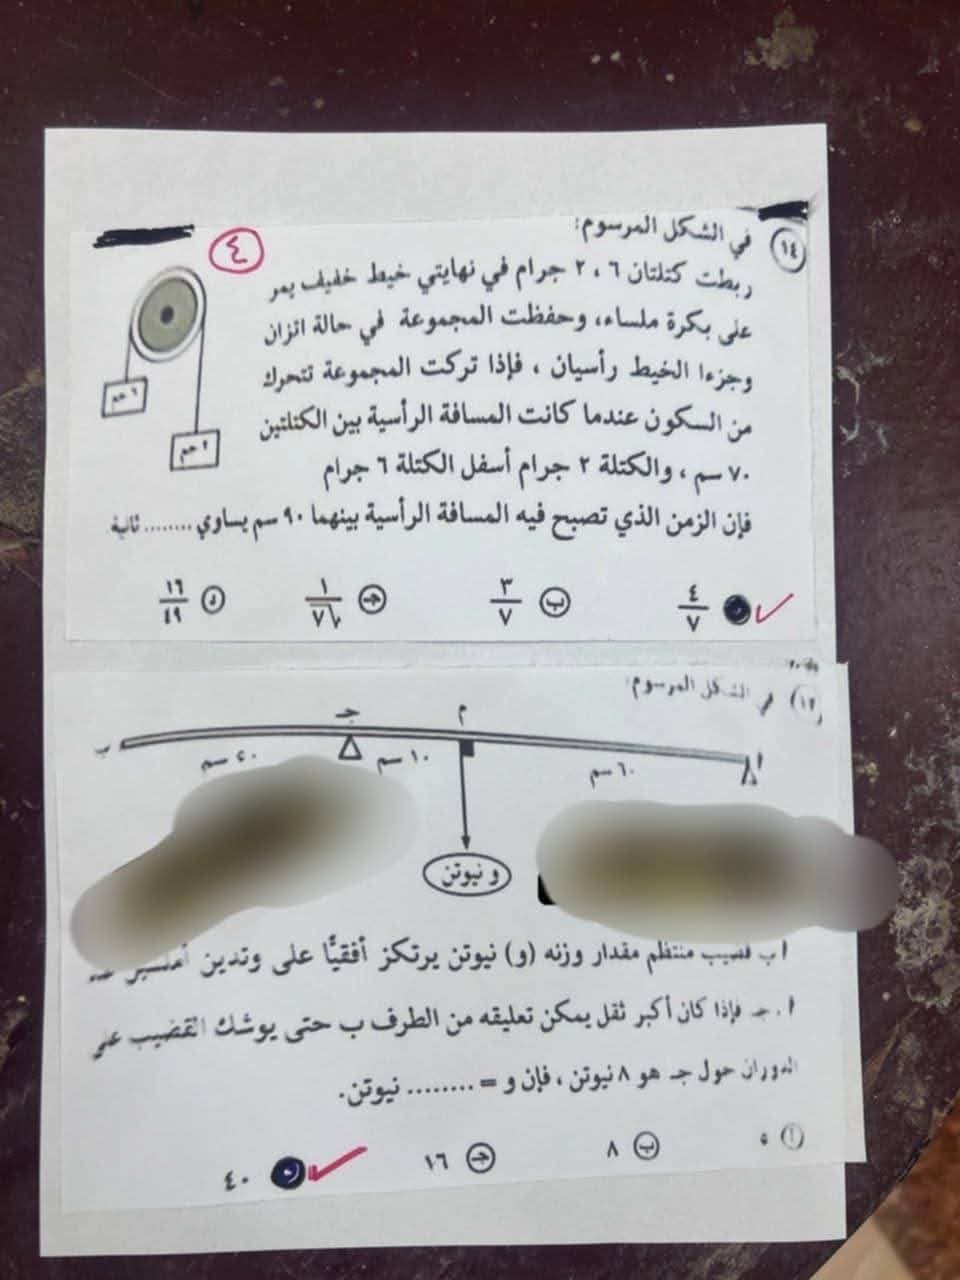 ٤
١٤ في الشكل المرسوم:
ربطت كتلتان ٦ ، ٢ جرام في نهايتي خيط خفيف يمر
على بكرة ملساء، وحفظت المجموعة في حالة اتزان
وجزءا الخيط رأسيان ، فإذا تركت المجموعة تتحرك
من السكون عندما كانت المسافة الرأسية بين الكتلتين
٧٠ سم ، والكتلة ٢ جرام أسفل الكتلة ٦ جرام
فإن الزمن الذي تصبح فيه المسافة الرأسية بينهما ٩٠ سم يساوي ........ ثانية
٦ جم
٢ جم
٤/٧ ب ٣/٧ ج ١/٧ د ١٦/٤٩
في الشكل المرسوم:
ب جـ م أ
٤٠ سم ١٠ سم ٦٠ سم
و نيوتن
أ ب قضيب منتظم مقدار وزنه (و) نيوتن يرتكز أفقيًّا على وتدين
أ ، جـ فإذا كان أكبر ثقل يمكن تعليقه من الطرف ب حتى يوشك القضيب على
الدوران حول جـ هو ٨ نيوتن ، فإن و = ........ نيوتن.
أ ٥ ب ٨ ج ١٦ ٤٠